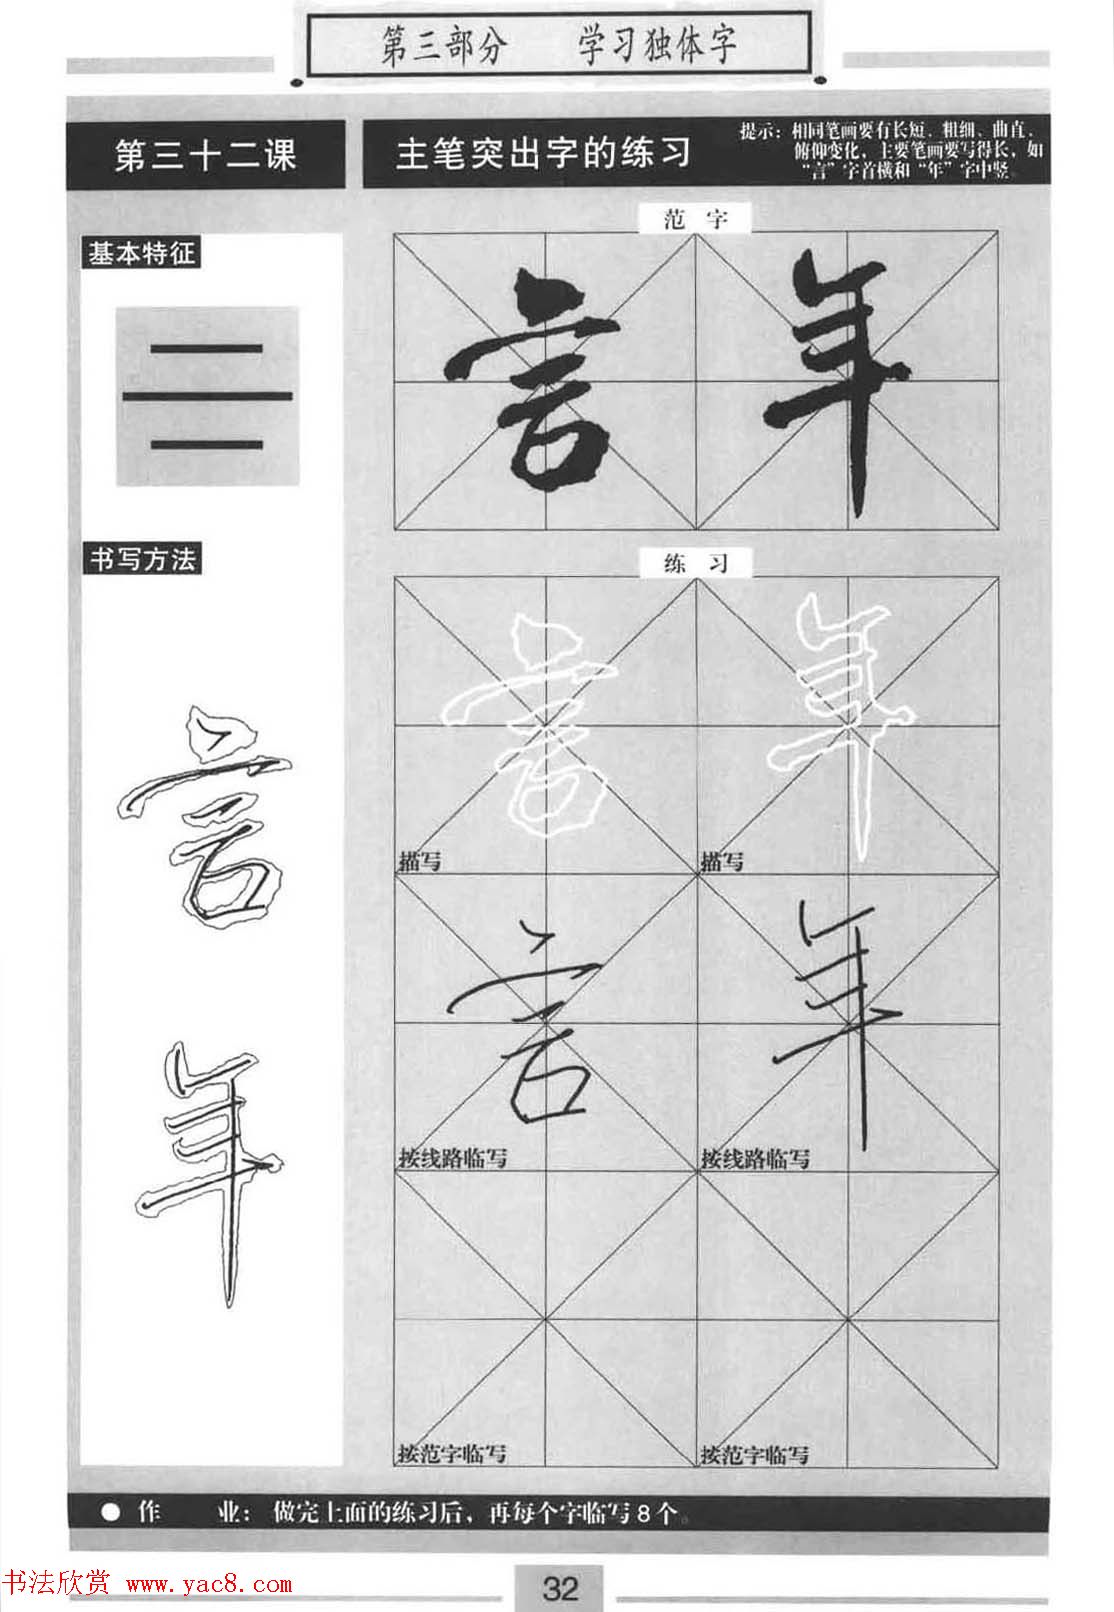 第三部分 学习独体字
第三十二课
主笔突出字的练习
提示：相同笔画要有长短、粗细、曲直、
俯仰变化，主要笔画要写得长，如
“言”字首横和“年”字中竖。
基本特征
书写方法
言
年
范 字
言 年
练 习
言 年
描写 描写
言 年
按线路临写 按线路临写
按范字临写 按范字临写
● 作 业：做完上面的练习后，再每个字临写8个。
32
书法欣赏 www.yac8.com